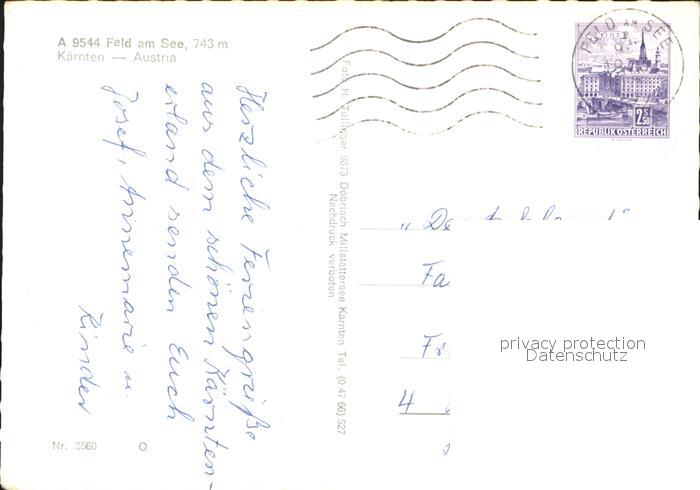 A 9544 Feld am See, 743 m
Kärnten — Austria
Herzliche Feriengrüße
aus dem schönen Kärnten-
erland senden Euch
Josef, Annemarie u.
Kinder
Nr. 3560
Foto H. Tollinger 9873 Döbriach Millstättersee Kärnten Tel. (0 47 66) 527
Nachdruck verboten
FELD AM SEE
LINZ
2.50
S
REPUBLIK ÖSTERREICH
Fa
Fr
4
privacy protection
Datenschutz